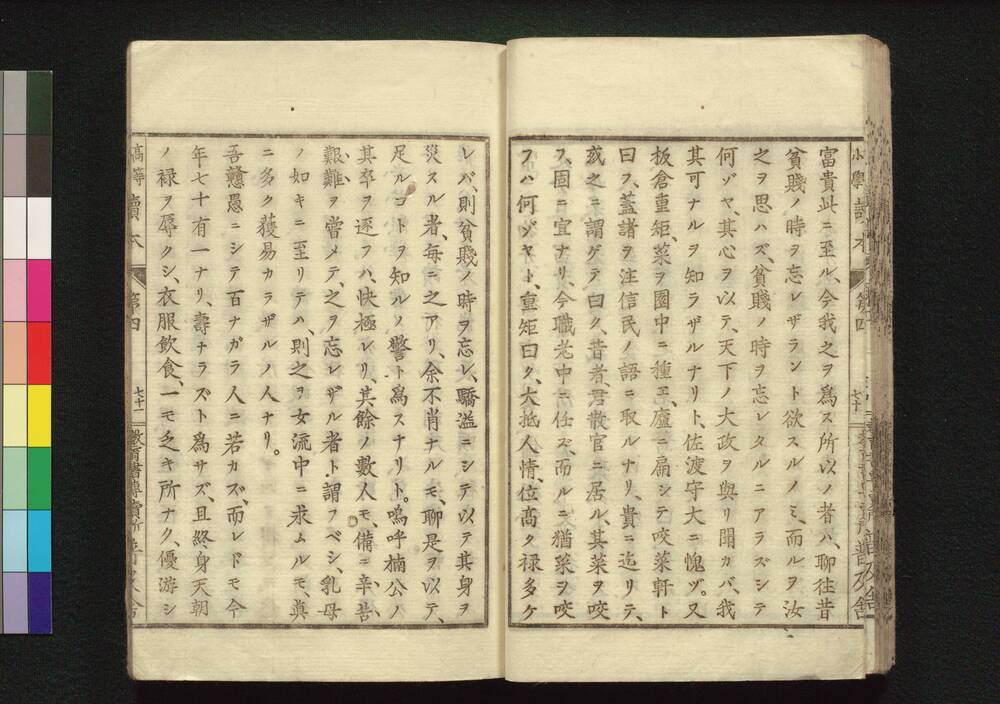 小學讀本
第四
七十
富貴此ニ至ル、今我之ヲ爲ス所以ノ者ハ、聊往昔
貧賤ノ時ヲ忘レザラント欲スルノミ、而ルヲ汝
之ヲ思ハズ、貧賤ノ時ヲ忘レタルニアラズシテ
何ゾヤ、其心ヲ以テ、天下ノ大政ヲ與リ聞カバ、我
其可ナルヲ知ラザルナリト、佐渡守大ニ愧ヅ。又
板倉重矩、菜ヲ園中ニ種エ、廬ニ扁シテ咬菜軒ト
曰フ、蓋諸ヲ注信民ノ語ニ取ルナリ、貴ニ迄リテ、
或之ニ謂ゲテ曰ク、昔者、君散官ニ居ル、其菜ヲ咬
フ、固ニ宜ナリ、今職老中ニ任ズ、而ルニ猶菜ヲ咬
フハ何ゾヤト、重矩曰ク、大抵人情、位高ク禄多ケ
レバ、則貧賤ノ時ヲ忘レ、驕溢ニシテ以テ其身ヲ
災スル者、毎ニ之アリ、余不肖ナルモ、聊是ヲ以テ、
足ルコトヲ知ルノ警ト爲スナリト。嗚呼楠公ノ
其卒ヲ逐フハ、快極レリ、其餘ノ數人モ、備ニ辛苦
艱難ヲ嘗メテ、之ヲ忘レザル者ト謂フベシ、乳母
ノ如キニ至リテハ、則之ヲ女流中ニ求ムルモ、眞
ニ多ク獲易カラザルノ人ナリ。
吾戇愚ニシテ百ナガラ人ニ若カズ、而レドモ今
年七十有一ナリ、壽ナラズト爲サズ、且終身天朝
ノ禄ヲ辱クシ、衣服飲食、一モ乏キ所ナク、優游シ
高等讀本
第四
七十一